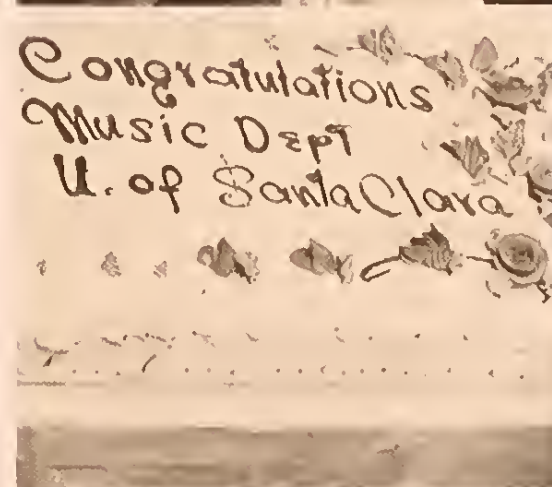 Congratulations
Music Dept
U. of Santa Clara